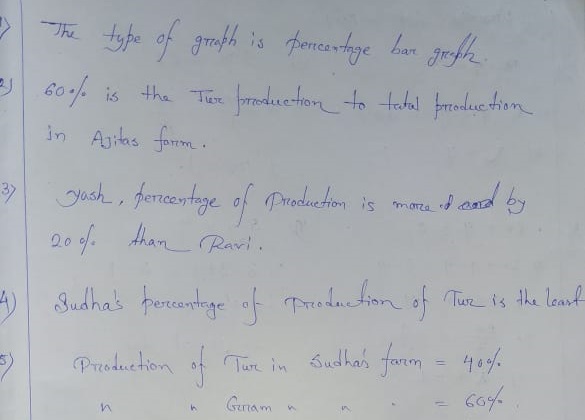 1) The type of graph is percentage bar graph.
2) 60% is the Tur production to total production
in Ajitas farm.
3) Yash, percentage of Production is more by
20% than Ravi.
4) Sudha's percentage of production of Tur is the least
5) Production of Tur in Sudha's farm = 40%
" " Gram " " " = 60%.